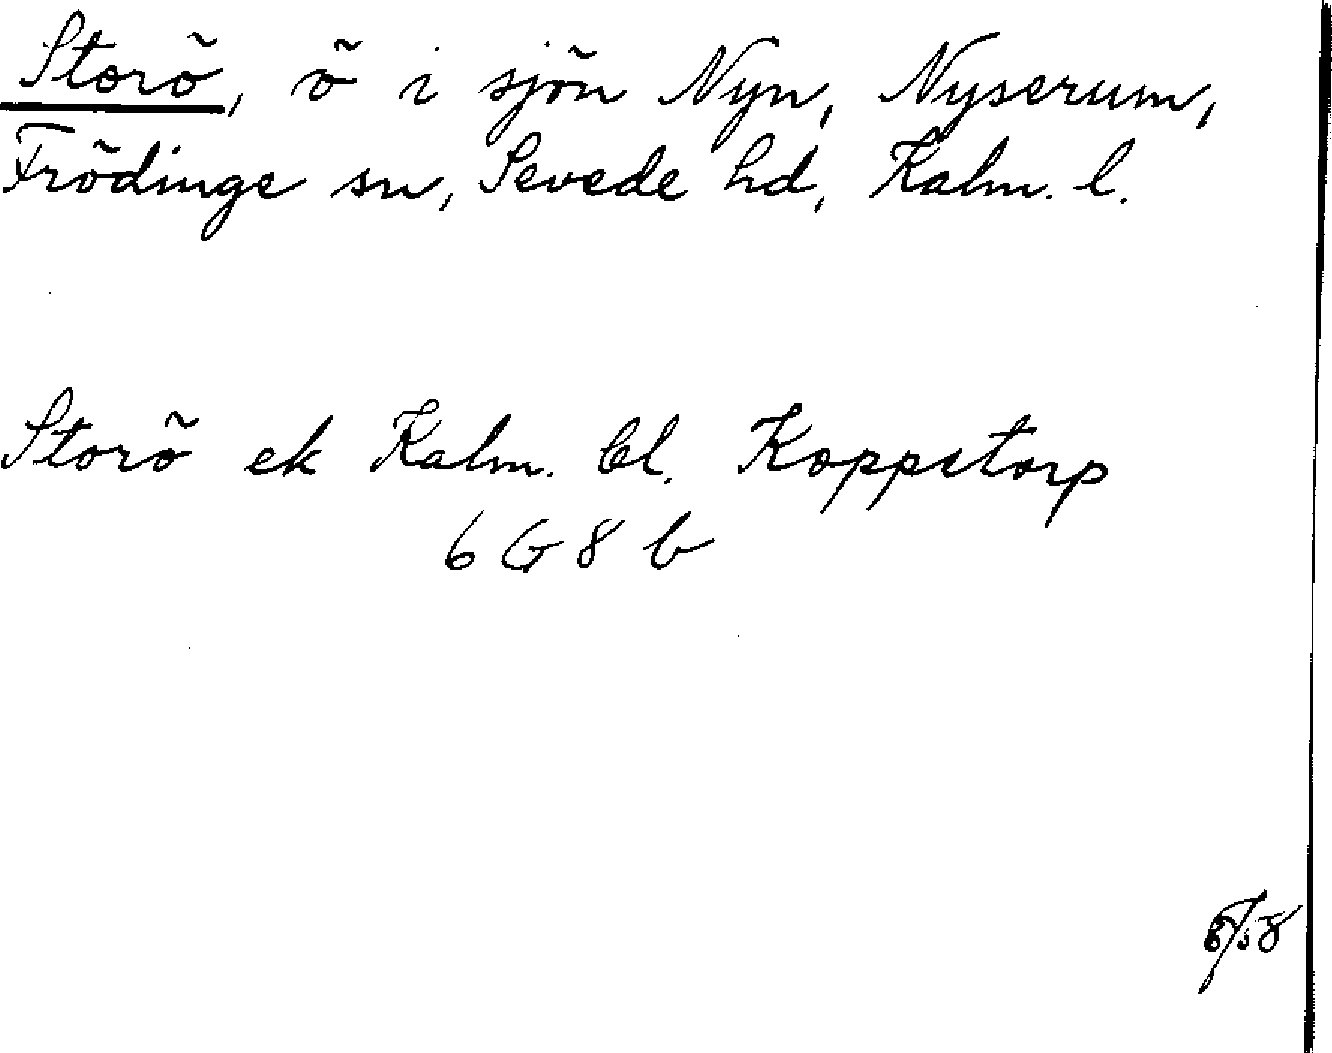 Storö, ö i sjön Nyn, Nyserum,
Frödinge sn, Sevede hd, Kalm. l.
Storö ek Kalm. bl. Koppetorp
6 G 8 b